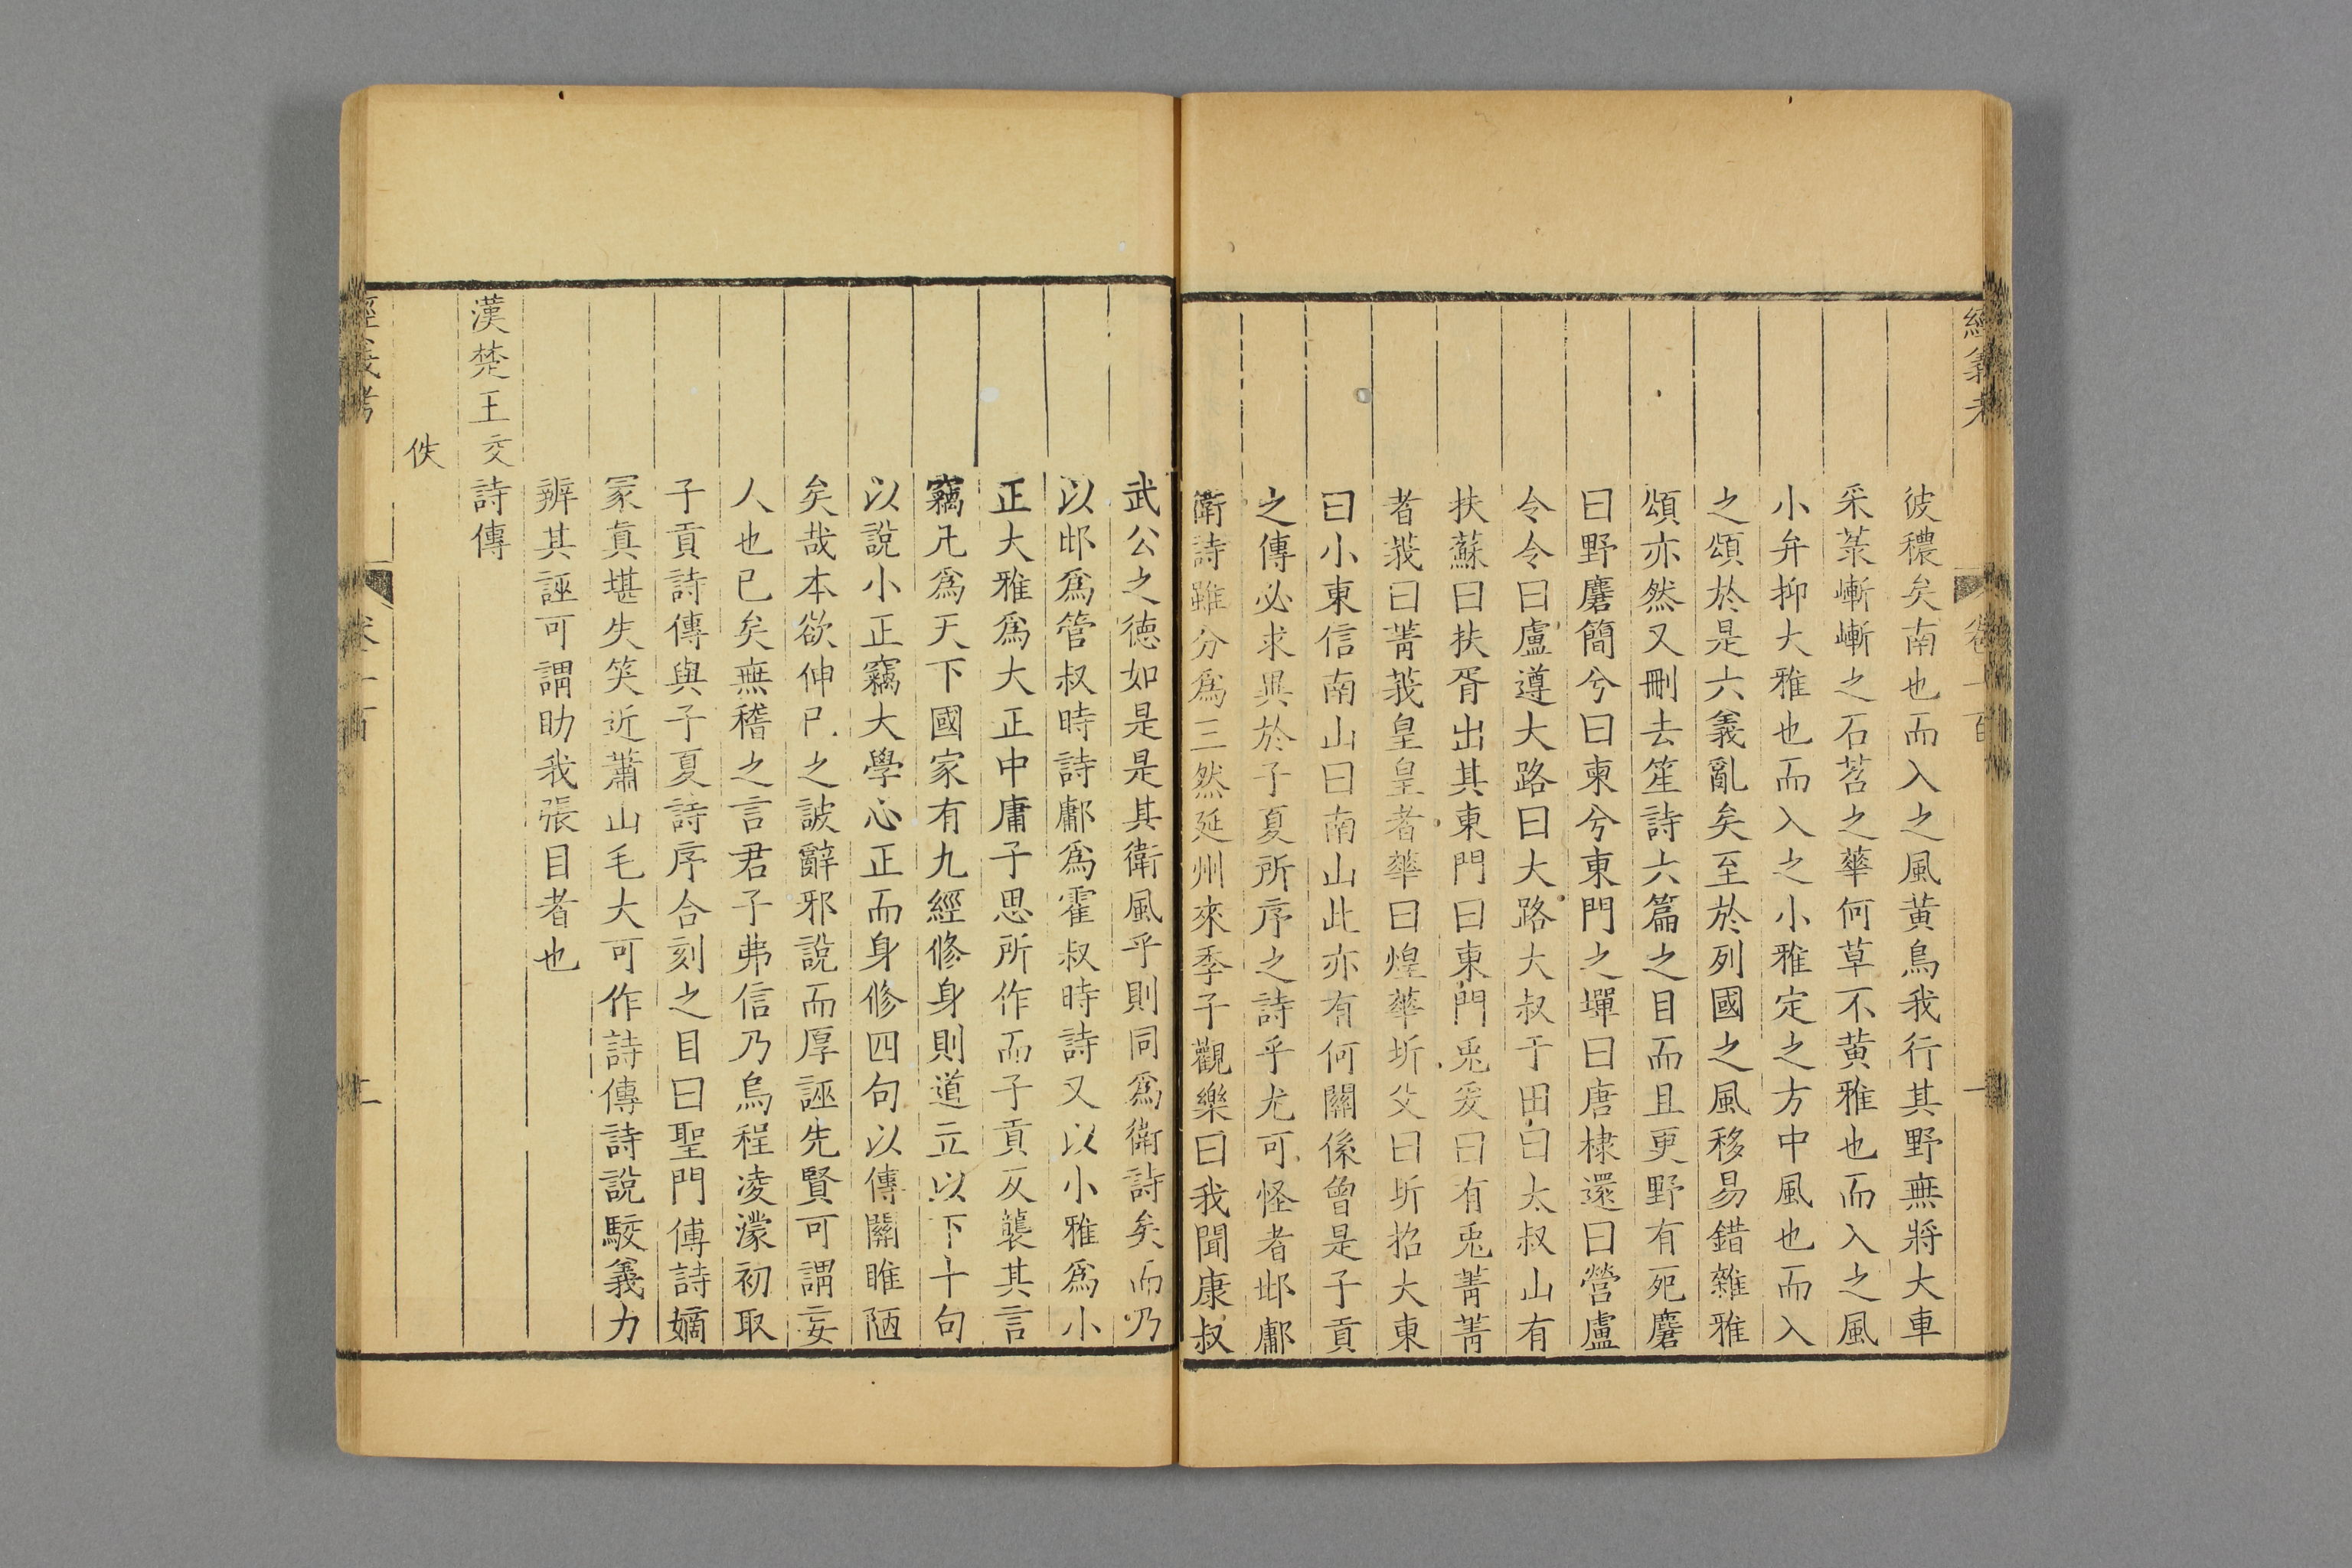 經義考 卷一百 一
彼穠矣南也而入之風黃鳥我行其野無將大車
采菉嶃嶃之石苕之華何草不黃雅也而入之風
小弁抑大雅也而入之小雅定之方中風也而入
之頌於是六義亂矣至於列國之風移易錯雜雅
頌亦然又刪去笙詩六篇之目而且更野有死麕
曰野麕簡兮曰柬兮東門之墠曰唐棣還曰營盧
令令曰盧遵大路曰大路大叔于田曰太叔山有
扶蘇曰扶胥出其東門曰東門兎爰曰有兎菁菁
者莪曰菁莪皇皇者華曰煌華圻父曰圻招大東
曰小東信南山曰南山此亦有何關係曾是子貢
之傳必求異於子夏所序之詩乎尤可怪者邶鄘
衛詩雖分爲三然延州來季子觀樂曰我聞康叔
武公之德如是是其衛風乎則同爲衛詩矣而乃
以邶爲管叔時詩鄘爲霍叔時詩又以小雅爲小
正大雅爲大正中庸子思所作而子貢反襲其言
竊凡爲天下國家有九經修身則道立以下十句
以說小正竊大學心正而身修四句以傳關雎陋
矣哉本欲伸已之詖辭邪說而厚誣先賢可謂妄
人也已矣無稽之言君子弗信乃烏程凌濛初取
子貢詩傳與子夏詩序合刻之目曰聖門傳詩嫡
冢真堪失笑近蕭山毛大可作詩傳詩說駁義力
辨其誣可謂助我張目者也
漢楚王交詩傳
佚
經義考 卷一百 二